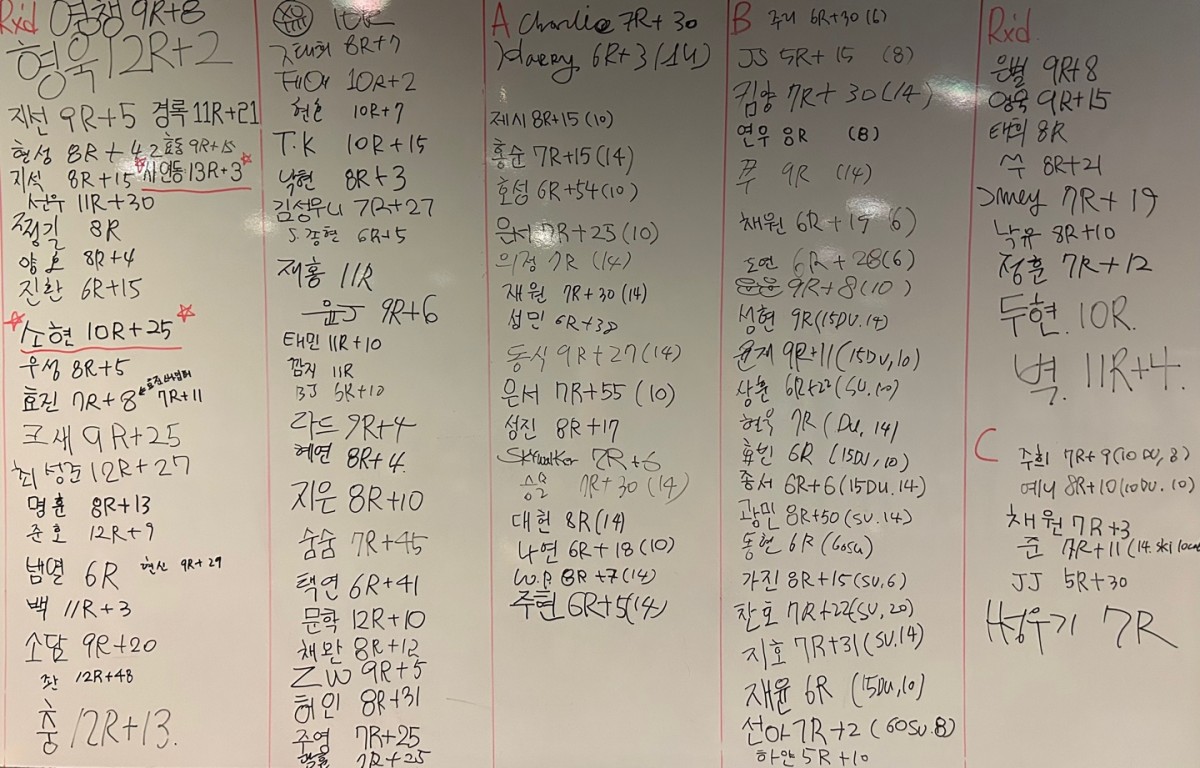 Rxd 영챙 9R+8
형욱 12R+2
지선 9R+5 경록 11R+21
현성 8R+42 효동 9R+15
지석 8R+15 사인동 13R+3
선우 11R+30
찡길 8R
양호 8R+4
진환 6R+15
소현 10R+25
우성 8R+5
효진 7R+8 7R+11
크새 9R+25
최성준 12R+27
명훈 8R+13
준호 12R+9
냄열 6R 현신 9R+29
백 11R+3
소담 9R+20
좌 12R+48
충 12R+13.
10R
8R+7
10R+2
현준 10R+7
T.K 10R+15
낙현 8R+3
김성우니 7R+27
S.종현 6R+5
재홍 11R
윤J 9R+6
태민 11R+10
깜자 11R
BJ 5R+10
라드 9R+4
혜연 8R+4
지은 8R+10
숨숨 7R+45
택연 6R+41
문학 12R+10
채완 8R+12
ZW 9R+5
허인 8R+31
주영 7R+25
7R+25
A Charlie 7R+30
Harry 6R+3(14)
제시 8R+15(10)
홍순 7R+15(14)
호성 6R+54(10)
은서 7R+25(10)
의정 7R (14)
재원 7R+30(14)
성민 6R+38
동식 9R+27(14)
은서 7R+55 (10)
성진 8R+17
Skywalker 7R+6
승모 7R+30(14)
대헌 8R(14)
나연 6R+18(10)
W.P 8R+7(14)
주현 6R+5(14)
B 주리 6R+30(6)
JS 5R+15 (8)
킴양 7R+30(14)
연우 8R (8)
쭈 9R (14)
채원 6R+19(6)
도연 6R+28(6)
윤윤 9R+8(10)
성현 9R(15DU.14)
윤제 9R+11(15DU,10)
상훈 6R+22(SU.10)
현욱 7R(DU,14)
효빈 6R (15DU,10)
종서 6R+6(15DU.14)
광민 8R+50(SU.14)
동현 6R(60SU)
가진 8R+15(SU,6)
찬호 7R+22(SU,20)
지호 7R+31(SU.14)
재윤 6R (15DU,10)
선아 7R+2(60SU.8)
하얀 5R+10
Rxd.
은별 9R+8
영욱 9R+15
태희 8R
쓱 8R+21
Jmey 7R+19
낙유 8R+10
정훈 7R+12
두현. 10R.
벽. 11R+4.
C 주희 7R+9(10DU,8)
예니 8R+10(10DU.10)
채원 7R+3
준 7R+11(14.ski
JJ 5R+30
성우기 7R